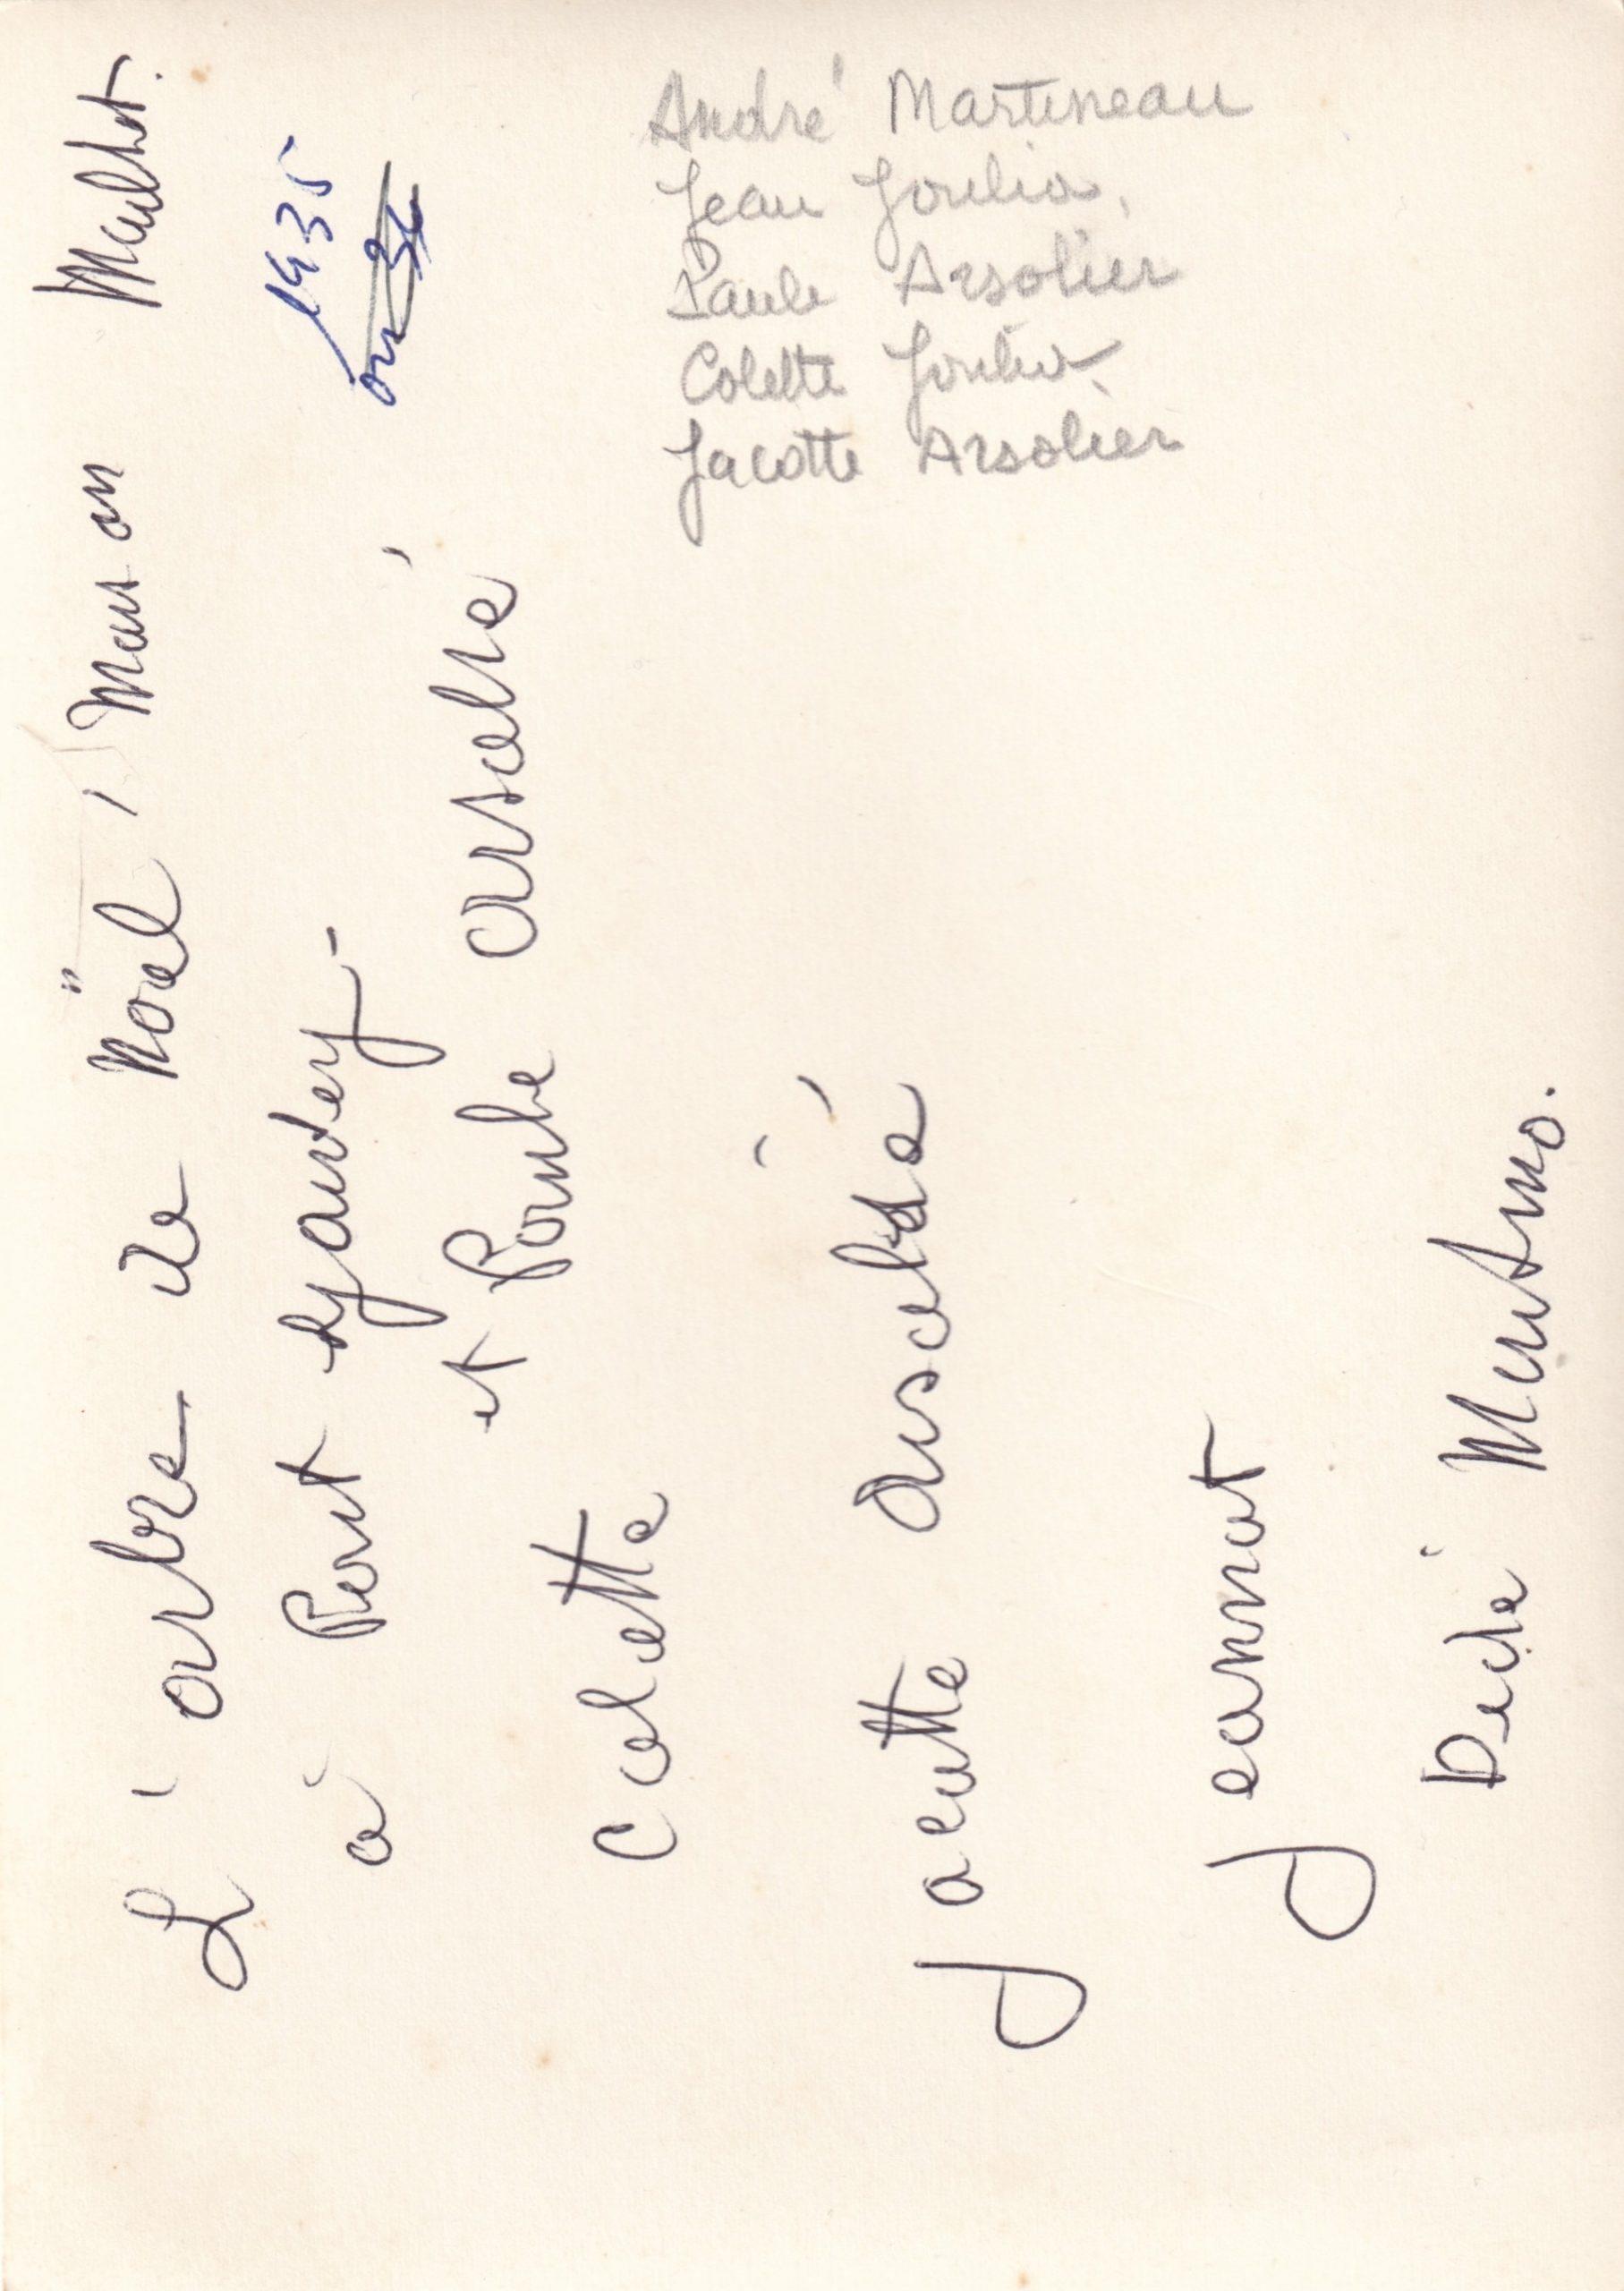 L'arbre de Noël, Maison Maulbot.
à Port Lyautey -
1935
ou 36
et Paule Arsolié
Colette
Jacotte Arsolié
Jeannot
Dédé Martino.
André Martineau
Jean Joulia,
Paule Arsolier
Colette Joulia
Jacotte Arsolier